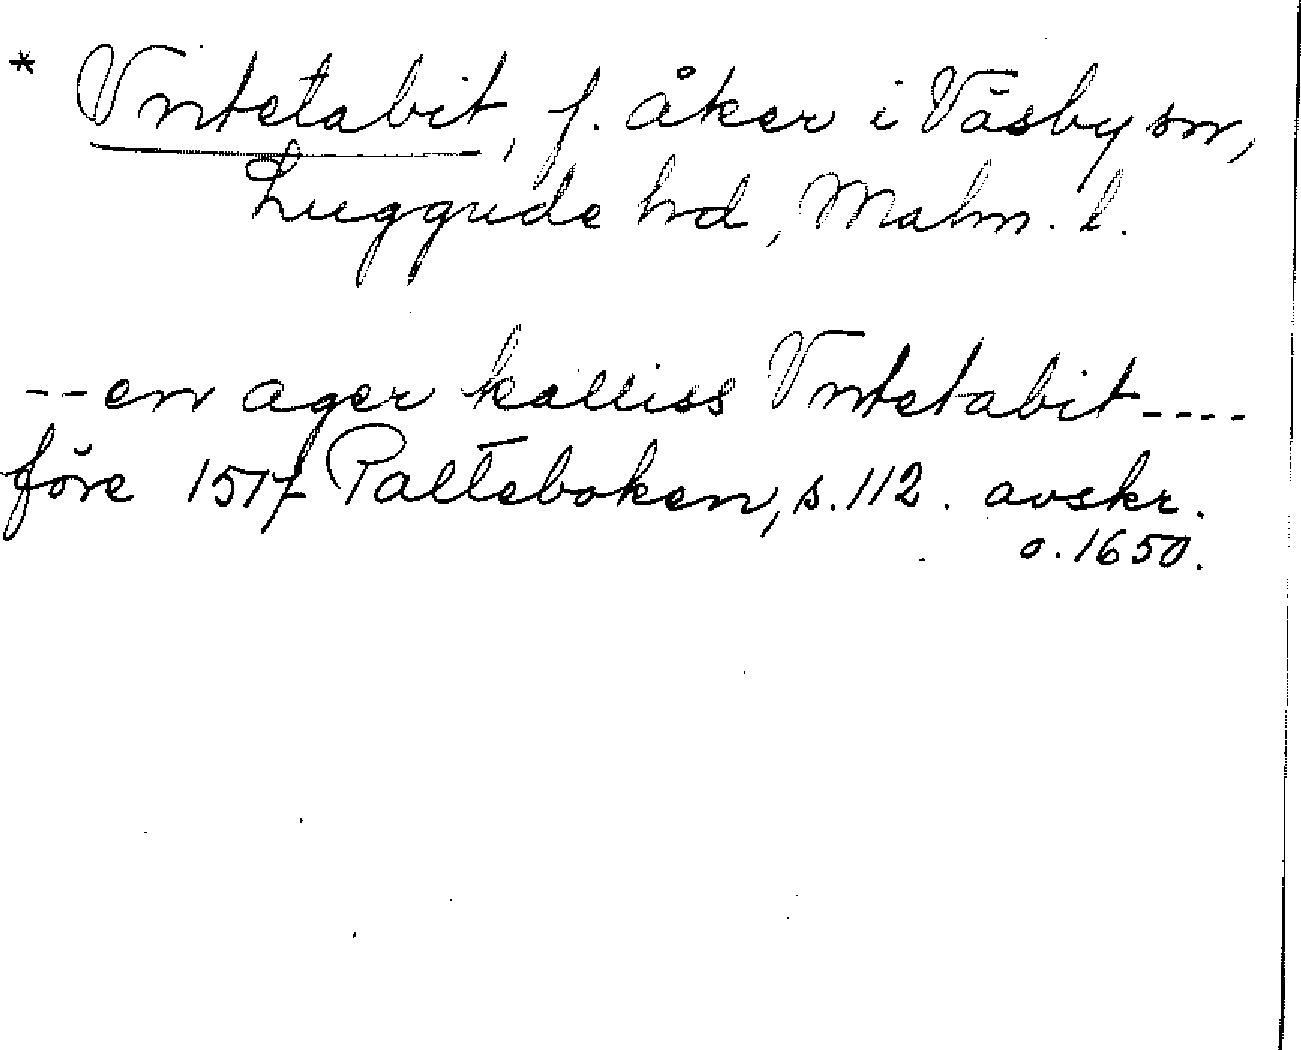 * Vntetabit, f. åker i Väsby sn,
Luggude hd, Malm. l.
--en ager kalliss Vntetabit----
före 1517 Palteboken, s. 112. avskr.
o. 1650.